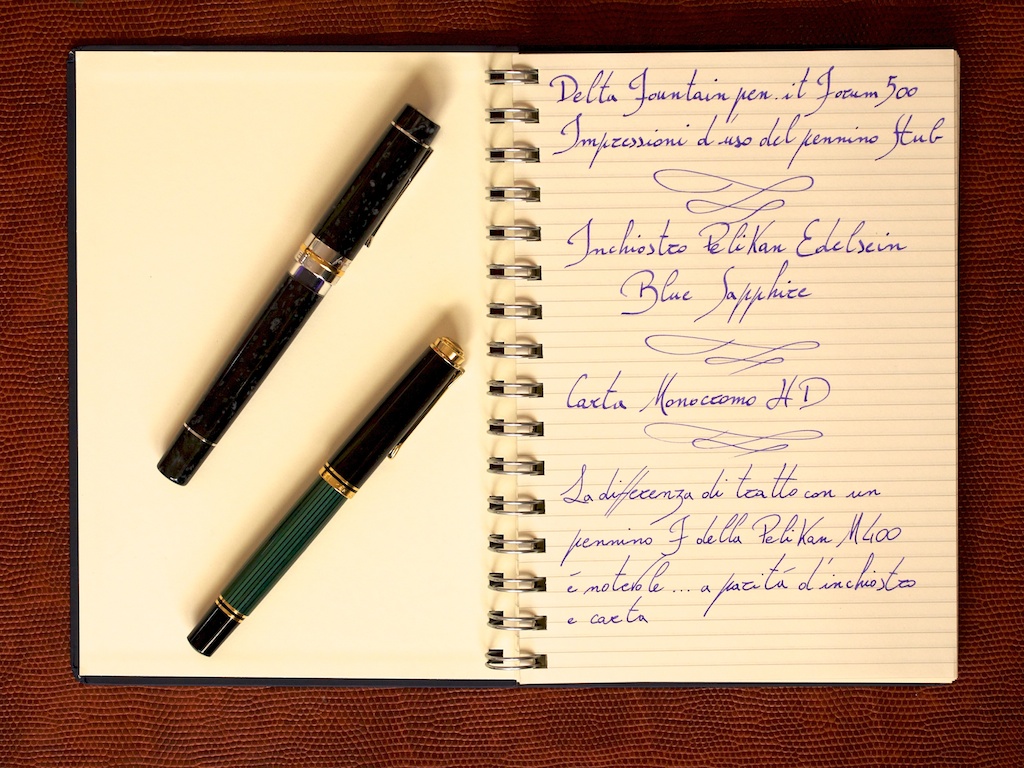 Delta Fountainpen.it Forum 500
Impressioni d'uso del pennino Stub
Inchiostro Pelikan Edelsein
Blue Sapphire
Carta Monocromo HD
La differenza di tratto con un
pennino F della Pelikan M400
é notevole ... a parità d'inchiostro
e carta